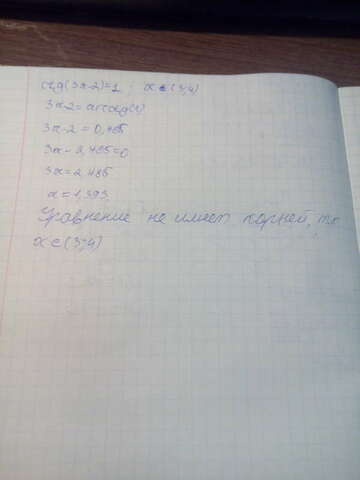 ctg(3x-2)=1; x ∈ (3;4)
3x-2=arcctg(1)
3x-2=0,485
3x-2,485=0
3x=2,485
x=1,393
Уравнение не имеет корней, тк
x ∈ (3;4)